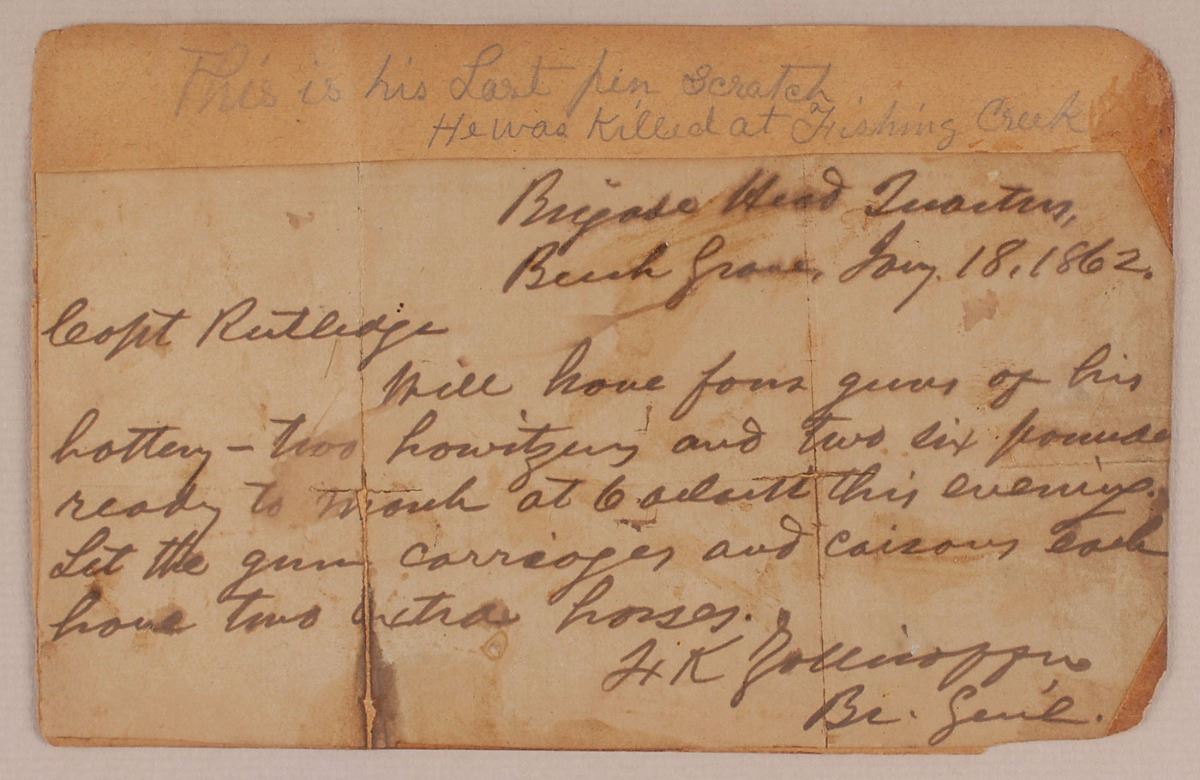 This is his Last pen Scratch
He was Killed at Fishing Creek
Brigade Head Quarters,
Beech Grove, Jany. 18, 1862.
Capt Rutledge
Will have four guns of his
battery – two howitzers and two six pounders
ready to march at 6 oclock this evening.
Let the gun carriages and caisons each
have two extra horses.
F K Zollicoffer
Br. Genl.